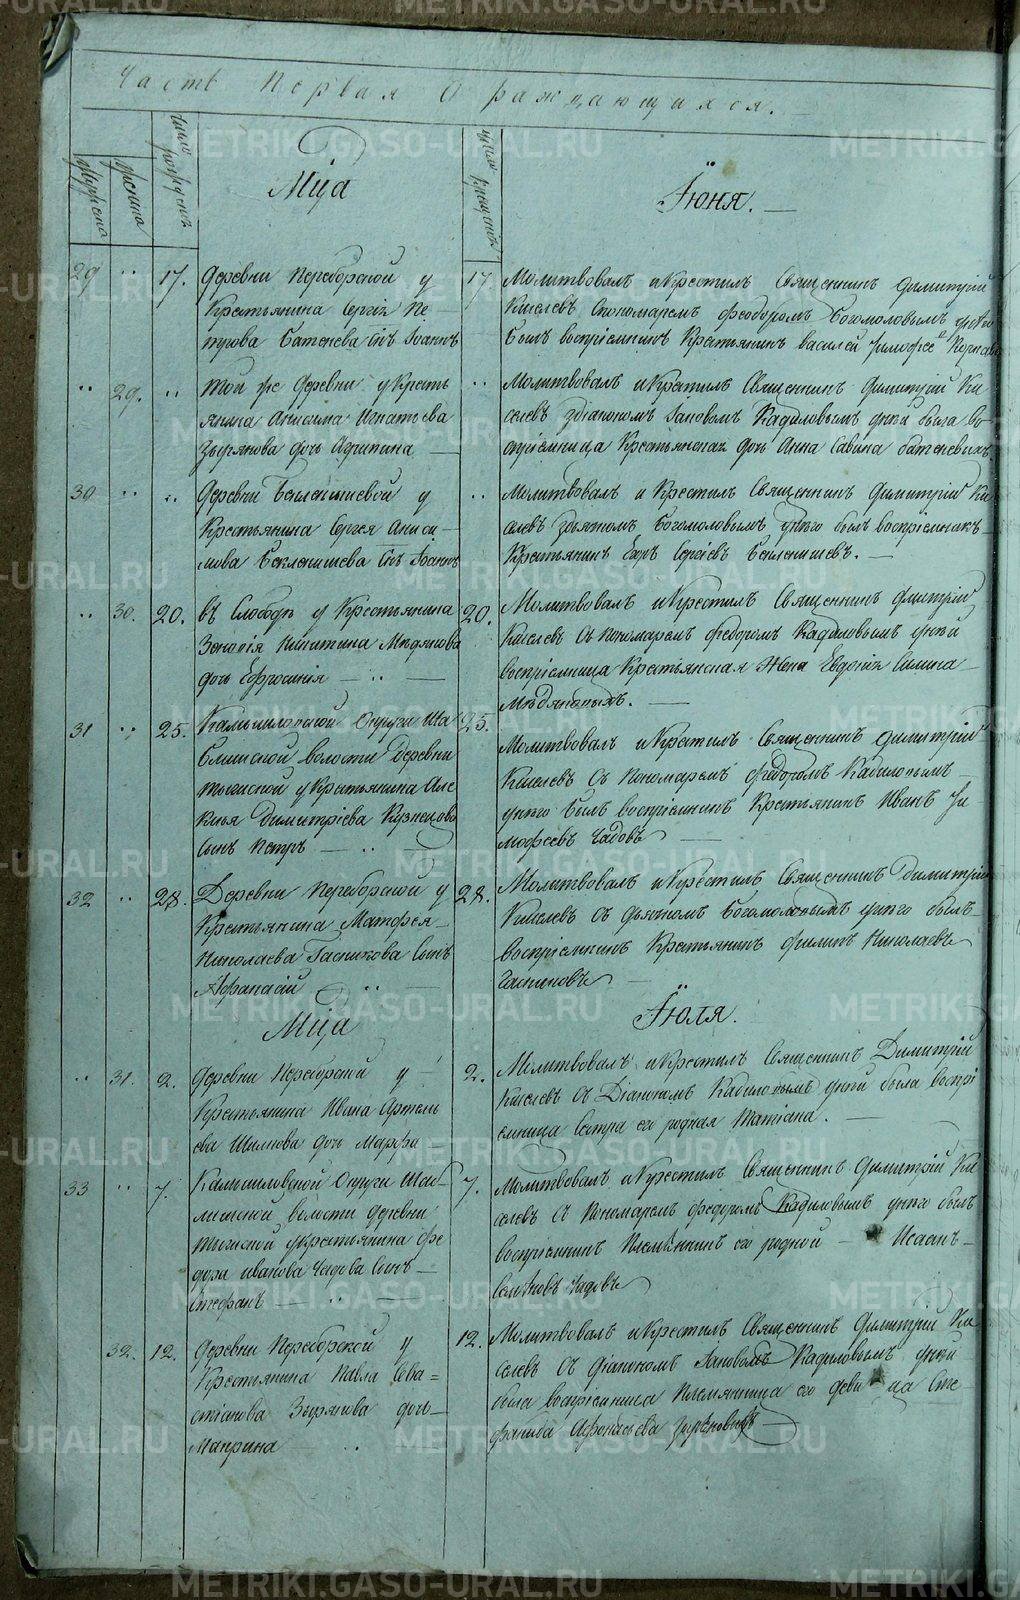 Часть Первая О раждающихся.
мужеска
женска
число рождения
Мца
число крещения
Іюня.
29 17. Деревни Переборской у
Крестьянина Сергія Пе-
трова Батенева снъ Іоаннъ
17 Молитвовалъ и Крестилъ Священникъ Димитрій
Киселевъ Спономаремъ Феодоромъ Богомоловымъ
былъ воспріемникъ Крестьянинъ василей Тимофеевъ
29. Той же Деревни у Кресть
янина Анисима Игнатьева
Зырянова дочь Агрипина
Молитвовалъ и Крестилъ Священникъ Димитрій Ки
селевъ здіакономъ Кадиловымъ унея была во
спріемница Крестьянская дочь Анна Савина батеневыхъ
30 Деревни Бекленищевой у
Крестьянина Сергея Аниси-
мова Бекленищева снъ Іоаннъ
Молитвовалъ и Крестилъ Священникъ Димитрій Ки
селевъ здьячкомъ Богомоловымъ унего былъ воспріемникъ
Крестьянинъ Сергіевъ Бекленищевъ.
30. 20. въ Слободѣ у Крестьянина
Зеновія Никитина Мѣдякова
дочь Ефросинія
20. Молитвовалъ и Крестилъ Священникъ Дмитрій
Киселевъ съ пономаремъ Федоромъ Кадиловымъ унея
воспріемница Крестьянская Жена Евдокія
Мѣдяковыхъ.
31 25. Камышловской Округи Ша
блишской волости Деревни
у Крестьянина Але
ксѣя Димитріева Кузнецова
сынъ Петръ
25. Молитвовалъ и Крестилъ Священникъ Димитрій
Киселевъ съ пономаремъ Федоромъ Кадиловымъ
унего былъ воспріемникъ Крестьянинъ Иванъ Ти-
мофеевъ Чадовъ
32 28. Деревни Переборской у
Крестьянина Матфея
Николаева Гасникова Сынъ
Афанасій
28. Молитвовалъ и Крестилъ Священникъ Димитрій
Киселевъ съ дьячкомъ Богомоловымъ унего былъ
Воспріемникъ Крестьянинъ Филипъ Николаевъ
Гасниковъ
Мца
Іюля.
31. 2. Деревни Переборской у
Крестьянина Ивана Артемь
ева Шилкова дочь Марфа
2. Молитвовалъ и Крестилъ Священникъ Димитрій
Киселевъ съ Діакономъ Кадиловымъ унея была воспрі
емница Сестра ея родная Татіана.
33 7. Камышловской Округи Шаб-
лишской волости Деревни
у Крестьянина Фе
дора Иванова Чадова Сынъ
Стефанъ
7. Молитвовалъ и Крестилъ Священникъ Димитрій Ки
селевъ съ пономаремъ Федоромъ Кадиловымъ унего былъ
воспріемникъ племянникъ его родной Исаакъ
Чадовъ
32. 12. Деревни Переборской у
Крестьянина Павла Сева=
стіанова Зырянова дочь
Маврина
12. Молитвовалъ и Крестилъ Священникъ Димитрій Ки
селевъ съ діакономъ Кадиловымъ унея
была воспріемница племянница его деви ца Сте
фанида Афонасьева Зыряновыхъ